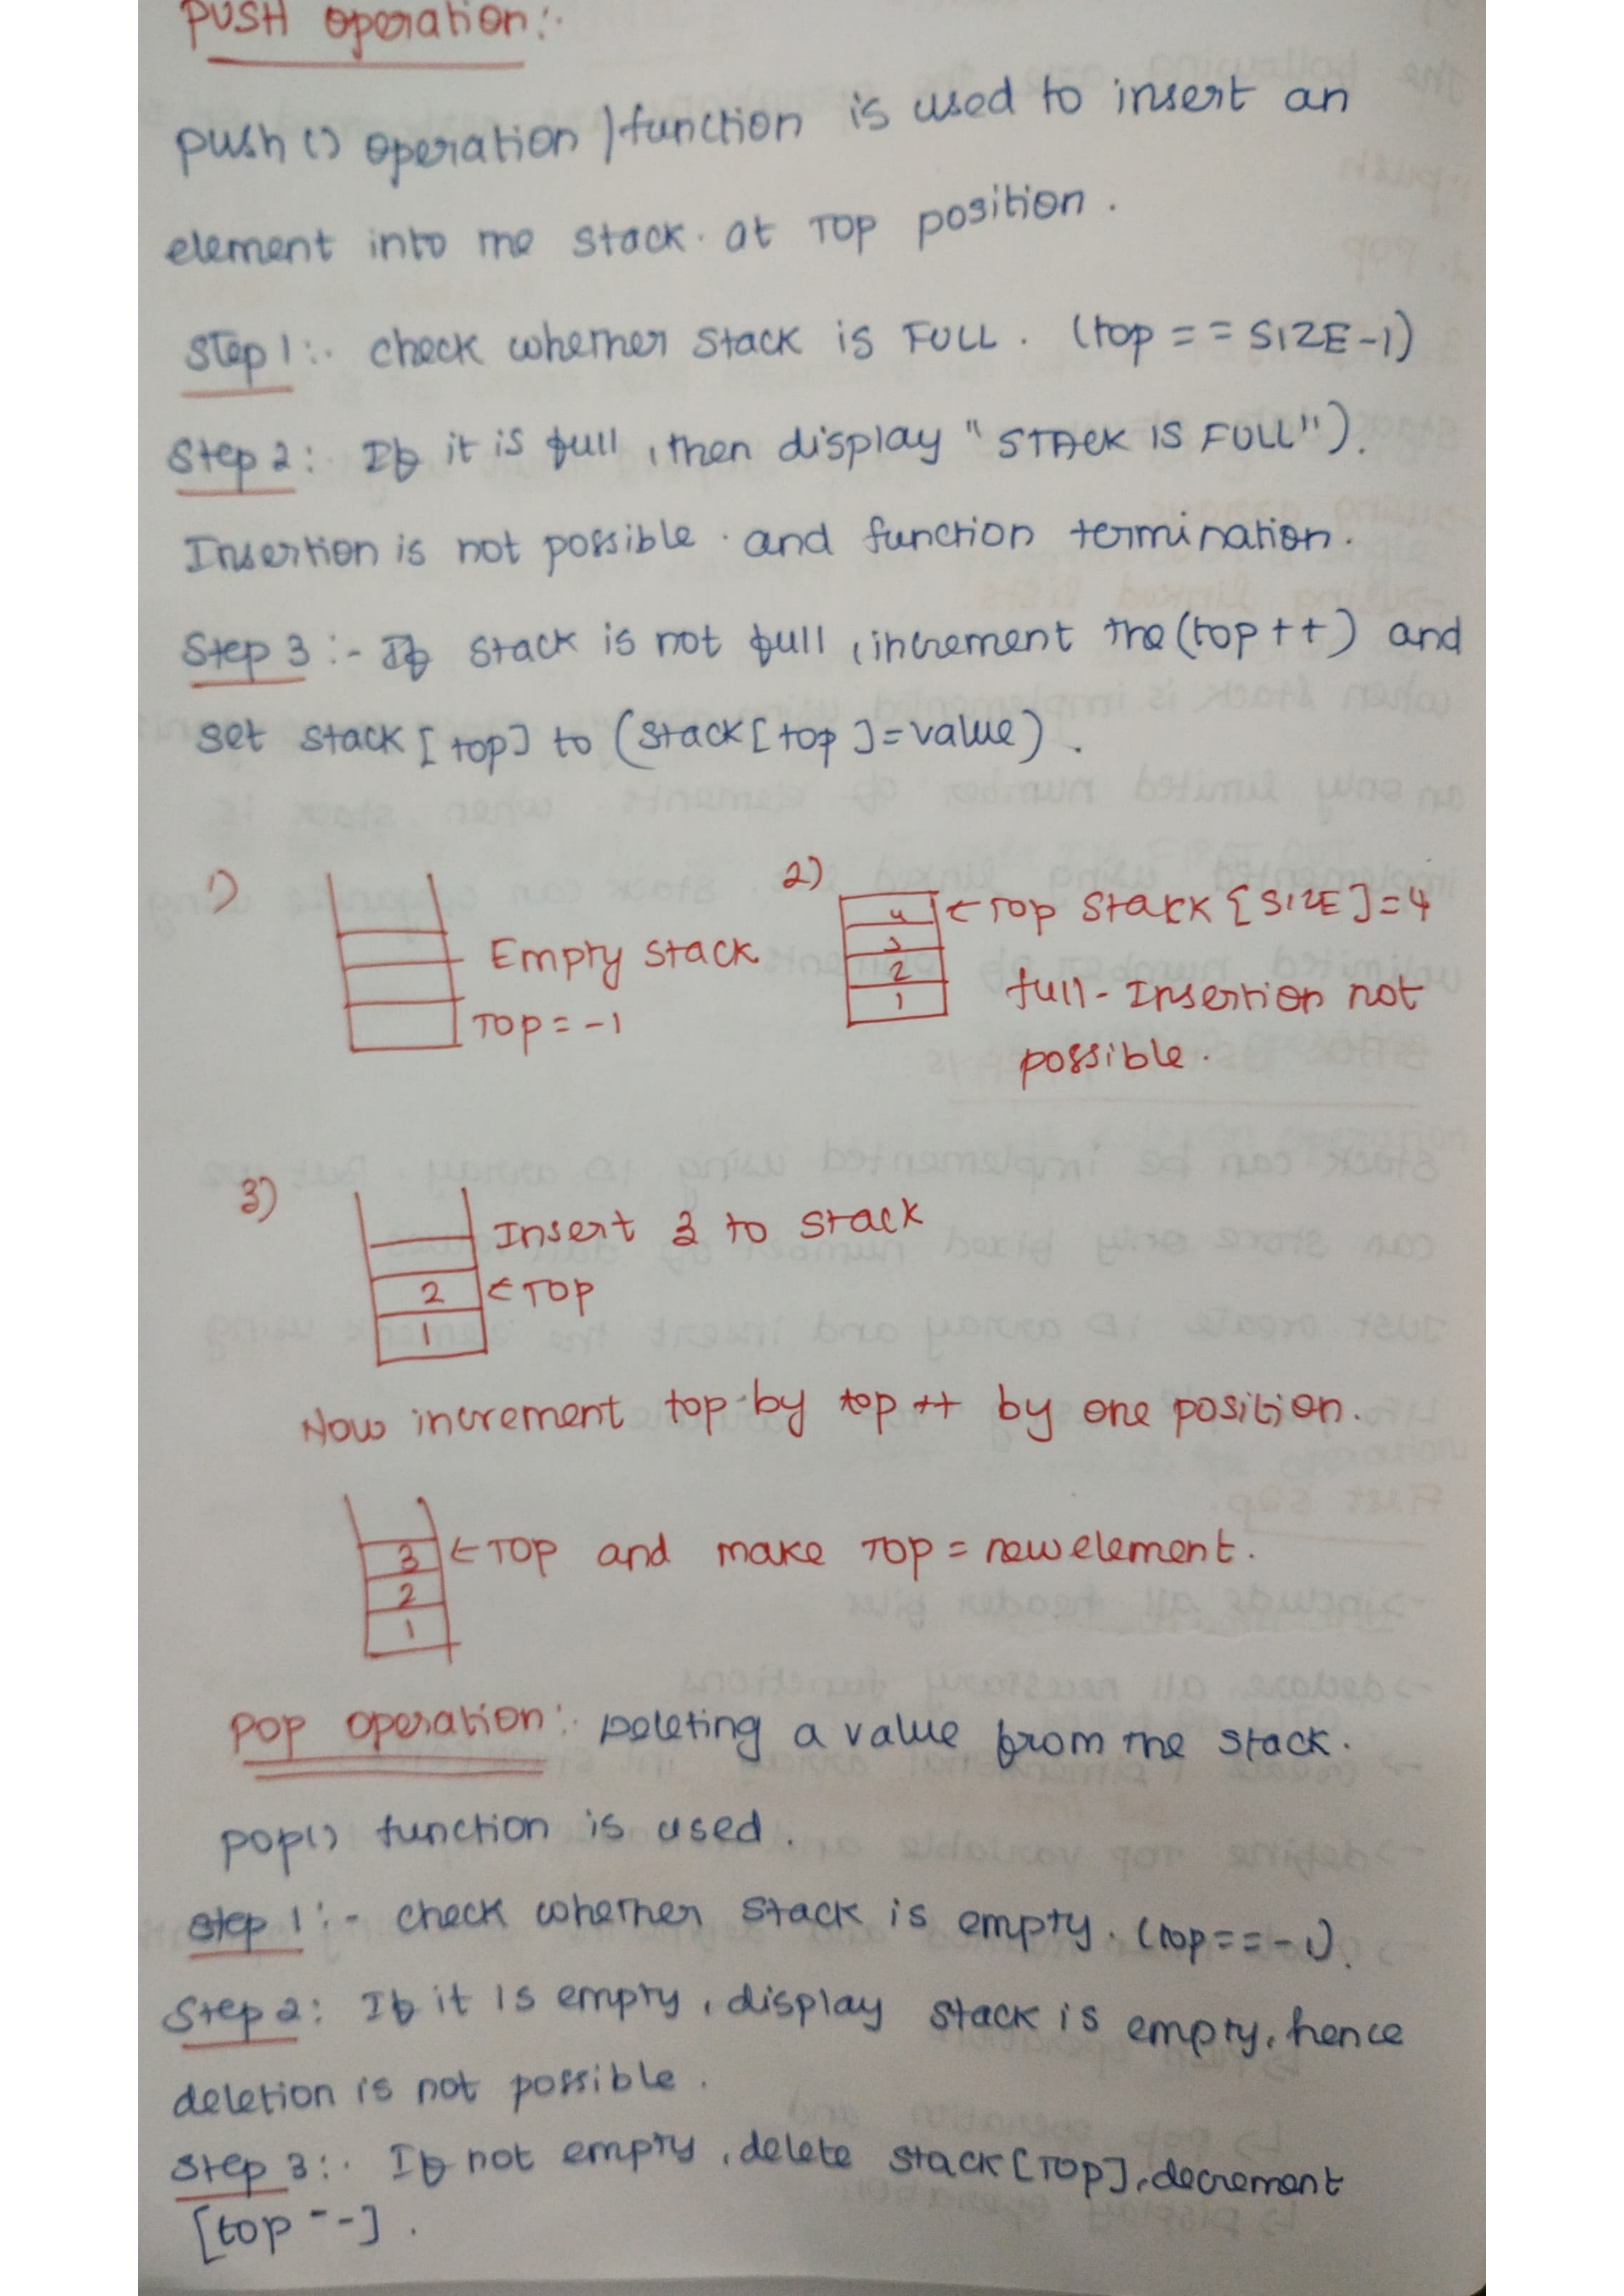 PUSH operation:-
push () operation / function is used to insert an
element into the stack. at TOP position.
Step 1:- check whether stack is FULL. (top == SIZE-1)
Step 2: If it is full, then display "STACK IS FULL").
Insertion is not possible. and function termination.
Step 3:- If stack is not full, increment the (top++) and
set stack [top] to (stack[top]=value).
1)
Empty stack
TOP = -1
2)
4
3
2
1
←TOP stack [SIZE]=4
full - Insertion not
possible.
3)
Insert 3 to stack
2 ←TOP
1
Now increment top by top++ by one position.
3 ←TOP and make TOP = new element.
2
1
POP operation:- Deleting a value from the stack.
pop() function is used.
Step 1:- check whether stack is empty. (top==-1).
Step 2: If it is empty, display stack is empty, hence
deletion is not possible.
Step 3:- If not empty, delete stack[TOP], decrement
[top--].